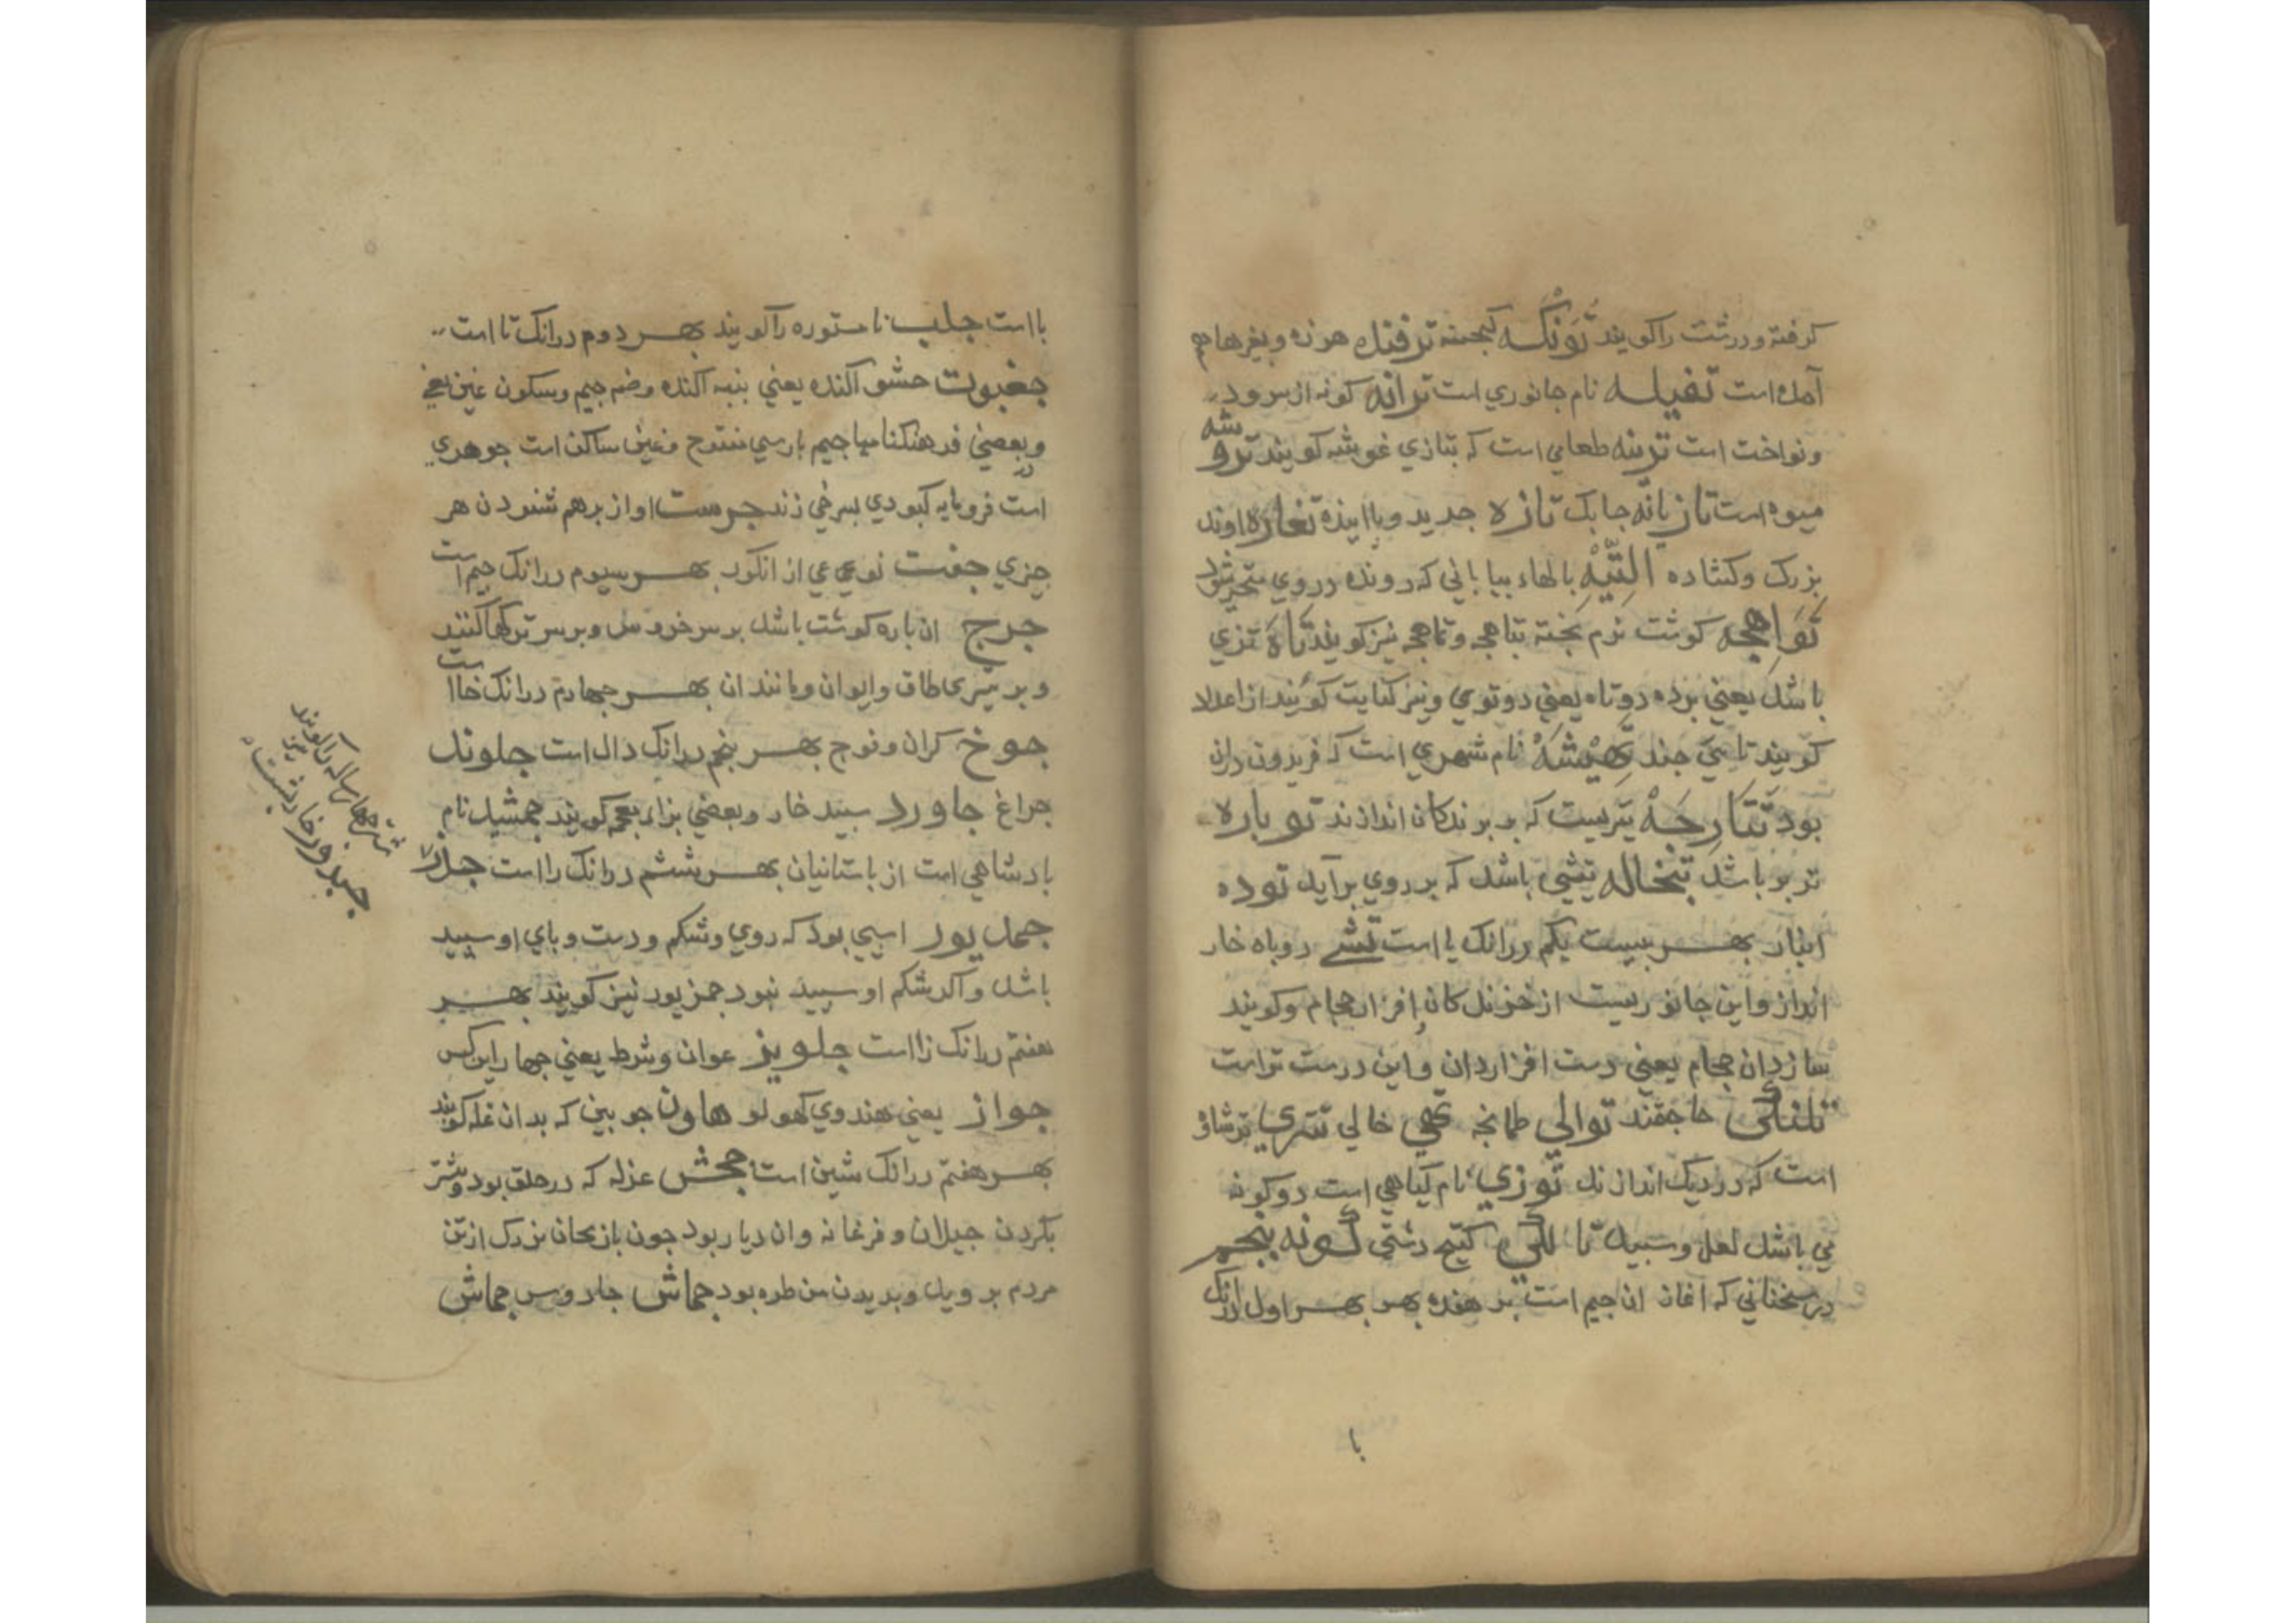 کرفته ودرشت را کویند تونکه کبجنه ترفنده هرزه وبغرها هم
آمده است تفیله نام جانوري است ترانه کونه از سرود
ونواخت است ترینه طعامي است که بتازي غوشنه کویند تروشه
میوه است تازیانه جابک تازه جدید وباانیذه تغاره اوند
بزرک وکشاده التیه بالهاء بیاباني که رونده در وي متحیر شود
تواهجه کوشت نرم بخته تباهجه وتماهجه نیز کویند تاه تزي
باشد یعني برده دوتاه یعني دوتوي ونیز کنایت کویند از اعداد
کویند تاهي جند تهیشه نام شهري است که فریدون دران
بود تتارجه تیریست که بر برندکان اندازند توباره
تربر باشد تبخاله تپشي باشد که بر روي برآید توده
انبار بهر بیست یکم درانک یا است تشي روباه خار
انداز واین جانوریست از خزندکان افزار حجام وکویند
سازدان حجام یعني دست افزاردان واین درست تراست
تلنکي حاجتمند توالي طمانجه تهي خالي تتري ترشاق
است که در دیک اندازند توزي نام کیاهي است دوکونه
مي باشد لعل وسبید تا للي کتیج دشتي کونه بنجم
در سخناني که آغاز ان جیم است بر هفده بهر بهر اول درانک
با
با است جلب نا مستوره را کویند بهر دوم درانک تا است
جغبوت حشو آکنده یعني بنبه آکنده وضم جیم وسکون غین یعني
وبعضي در فرهنکنامها جیم بارسي مفتوح وغین ساکن است جوهري
است فرومایه کبودي بسرخي زند جرست اواز برهم شنودن هر
جیزي جفت نوعي از انکور بهر سیوم درانک جیم است
جرج ان باره کوشت باشد بر سر خروس وبر سر ترکها کنند
وبر تیزي طاق وایوان ومانند ان بهر جهارم درانک خا است
جوخ کران وفوج بهر بنجم درانک دال است جلوند
جراغ جاورد سبید خار وبعضي بزاء معجم کویند جمشید نام
بادشاهي است از باستانیان بهر ششم درانک را است جذر
شتر جهار ساله را کویند
جبذور خاربشت
جمل بور اسبي بود که روي وشکم ودست وباي او سبید
باشد واکر شکم او سبید نبود جمز بور نیز کویند بهر
هفتم درانک زا است جلویز عوان وشرط یعني جهار این کس
جواز یعني هندوي کهولو هاون جوبین که بدان غله کوبند
بهر هفتم درانک شین است جحش غزله که در حلق بود وبیشتر
بکردن جیلان وفرغانه وان دیار بود جون بازنجان بزرک از تن
مردم بر وید وبریدن من طره بود جماش جادوس جماش